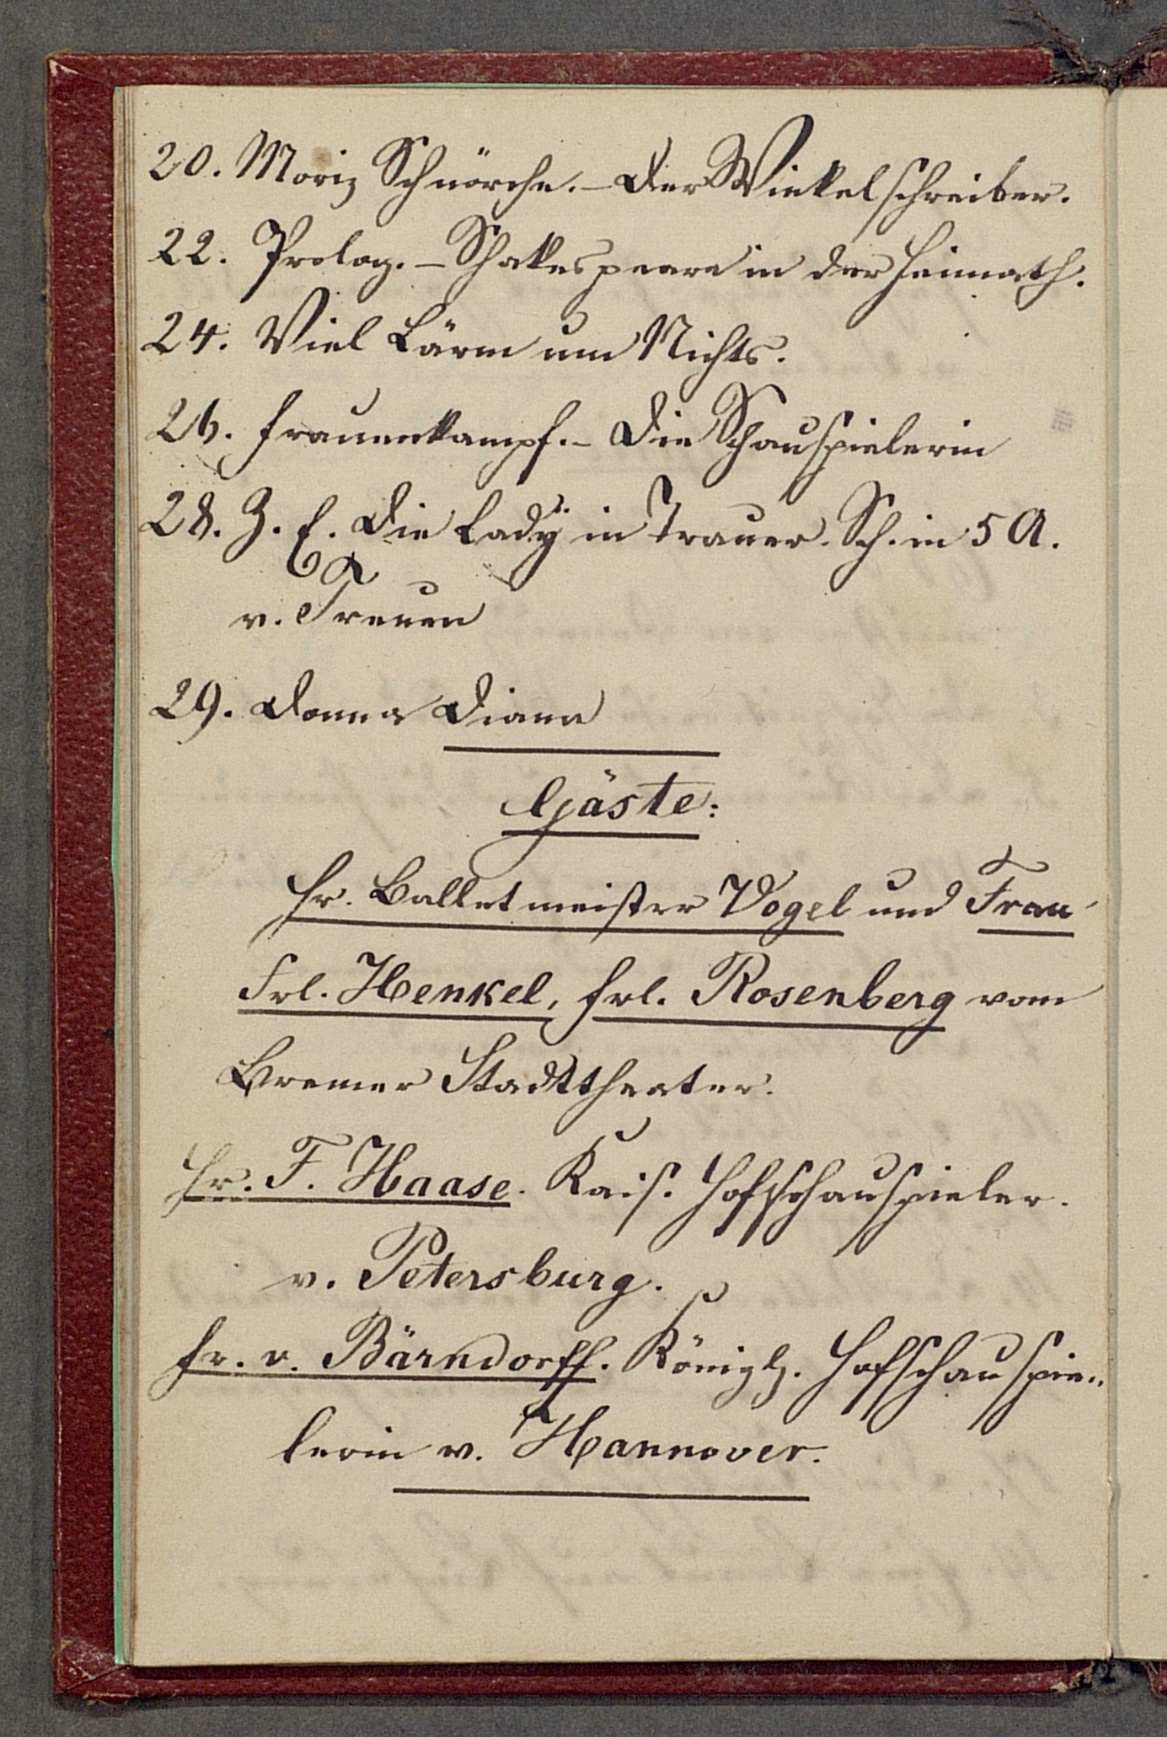 20. Moriz Schnörche. – Der Winkelschreiber.
22. Prolog. – Shakespeare in der Heimath.
24. Viel Lärm um Nichts.
26. Frauenkampf. – Die Schauspielerin
28. Z. E. Die Lady in Trauer. Sch. in 5 A.
v. Treuen
29. Donna Diana
Gäste:
Hr. Balletmeister Vogel und Frau
Frl. Henkel, Frl. Rosenberg vom
Bremer Stadttheater.
Hr. F. Haase. Kais. Hofschauspieler.
v. Petersburg.
Fr. v. Bärndorff. Königl. Hofschauspie-
lerin v. Hannover.